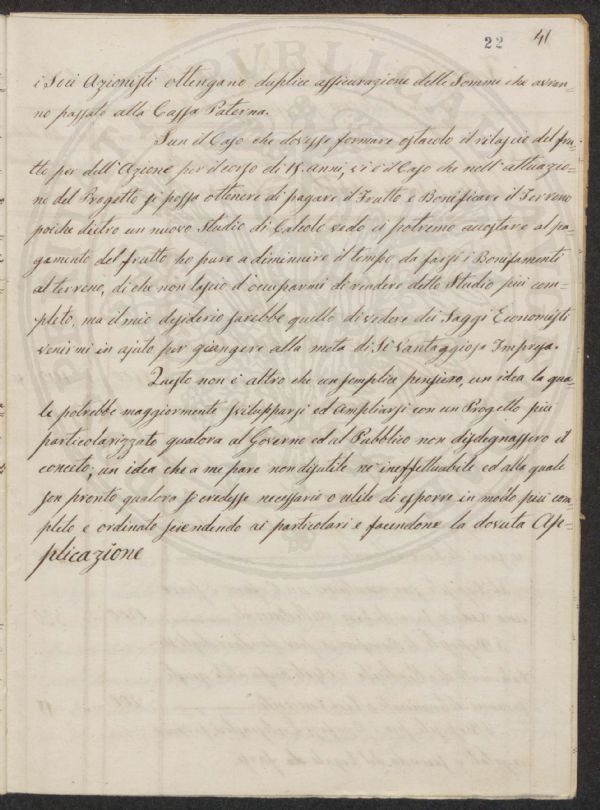 22 41
i Soci Azionisti ottengano duplice assicurazione delle Somme che avran=
no passato alla Cassa Paterna.
Sun il Caso che dovesse formare ostacolo il rilascio del fru
tto per dell'Azione per il corso di 15 anni, vi è il Caso che nell'attuazio=
ne del Progetto si possa ottenere di pagare il Frutto e Bonificare il Terreno
poiche dietro un nuovo Studio di Calcolo vedo ci potremo accostare al pa=
gamento del frutto ho pure a diminuire il tempo da farsi i Bonifamenti
al terreno, di che non lascio d'occuparmi di rendere dello Studio più com=
pleto, ma il mio desiderio sarebbe quello di vedere dei Saggi Economisti
venirmi in ajuto per giungere alla meta di Si Vantaggiosa Impresa.
Questo non è altro che un semplice pensiero, un idea la qua=
le potrebbe maggiormente svilupparsi ed Ampliarsi con un Progetto più
particolarizzato qualora al Governo ed al Pubblico non disdegnassero il
concito; un idea che a me pare non disutile nè ineffettuabile ed alla quale
son pronto qualora si credesse necessario o utile di esporre in modo più com=
pleto e ordinato sciendendo ai particolari e facendone la dovuta Ap=
plicazione